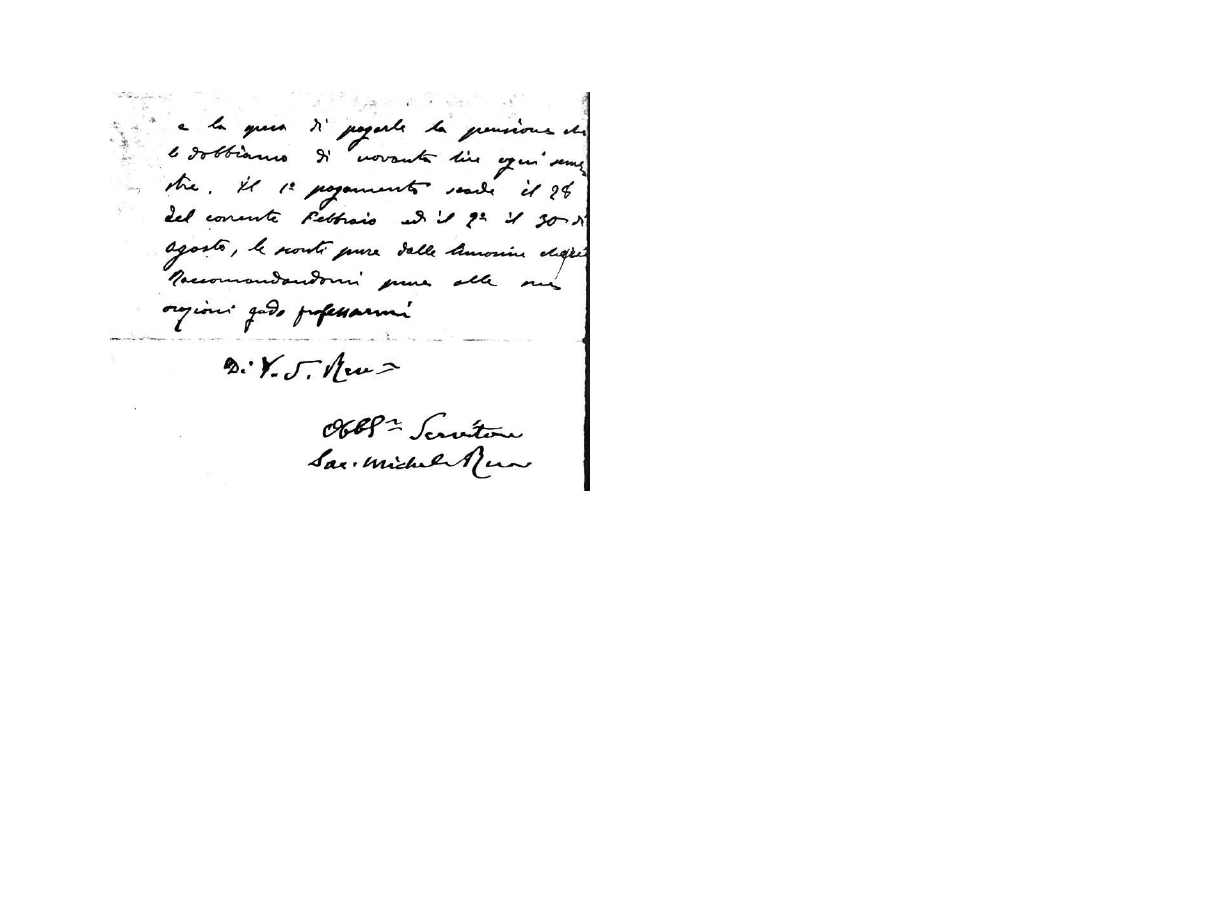 e la prega di pagarle la pensione che
le dobbiamo di novanta lire ogni seme
stre. Il 1º pagamento scade il 28
del corrente Febbraio ed il 2º il 30 di
agosto, le sconti pure dalle limosine
Raccomandandomi pure alle sue
orazioni godo professarmi
Di V. S. Rev
Obbl Servitore
Sac. Michele Rua